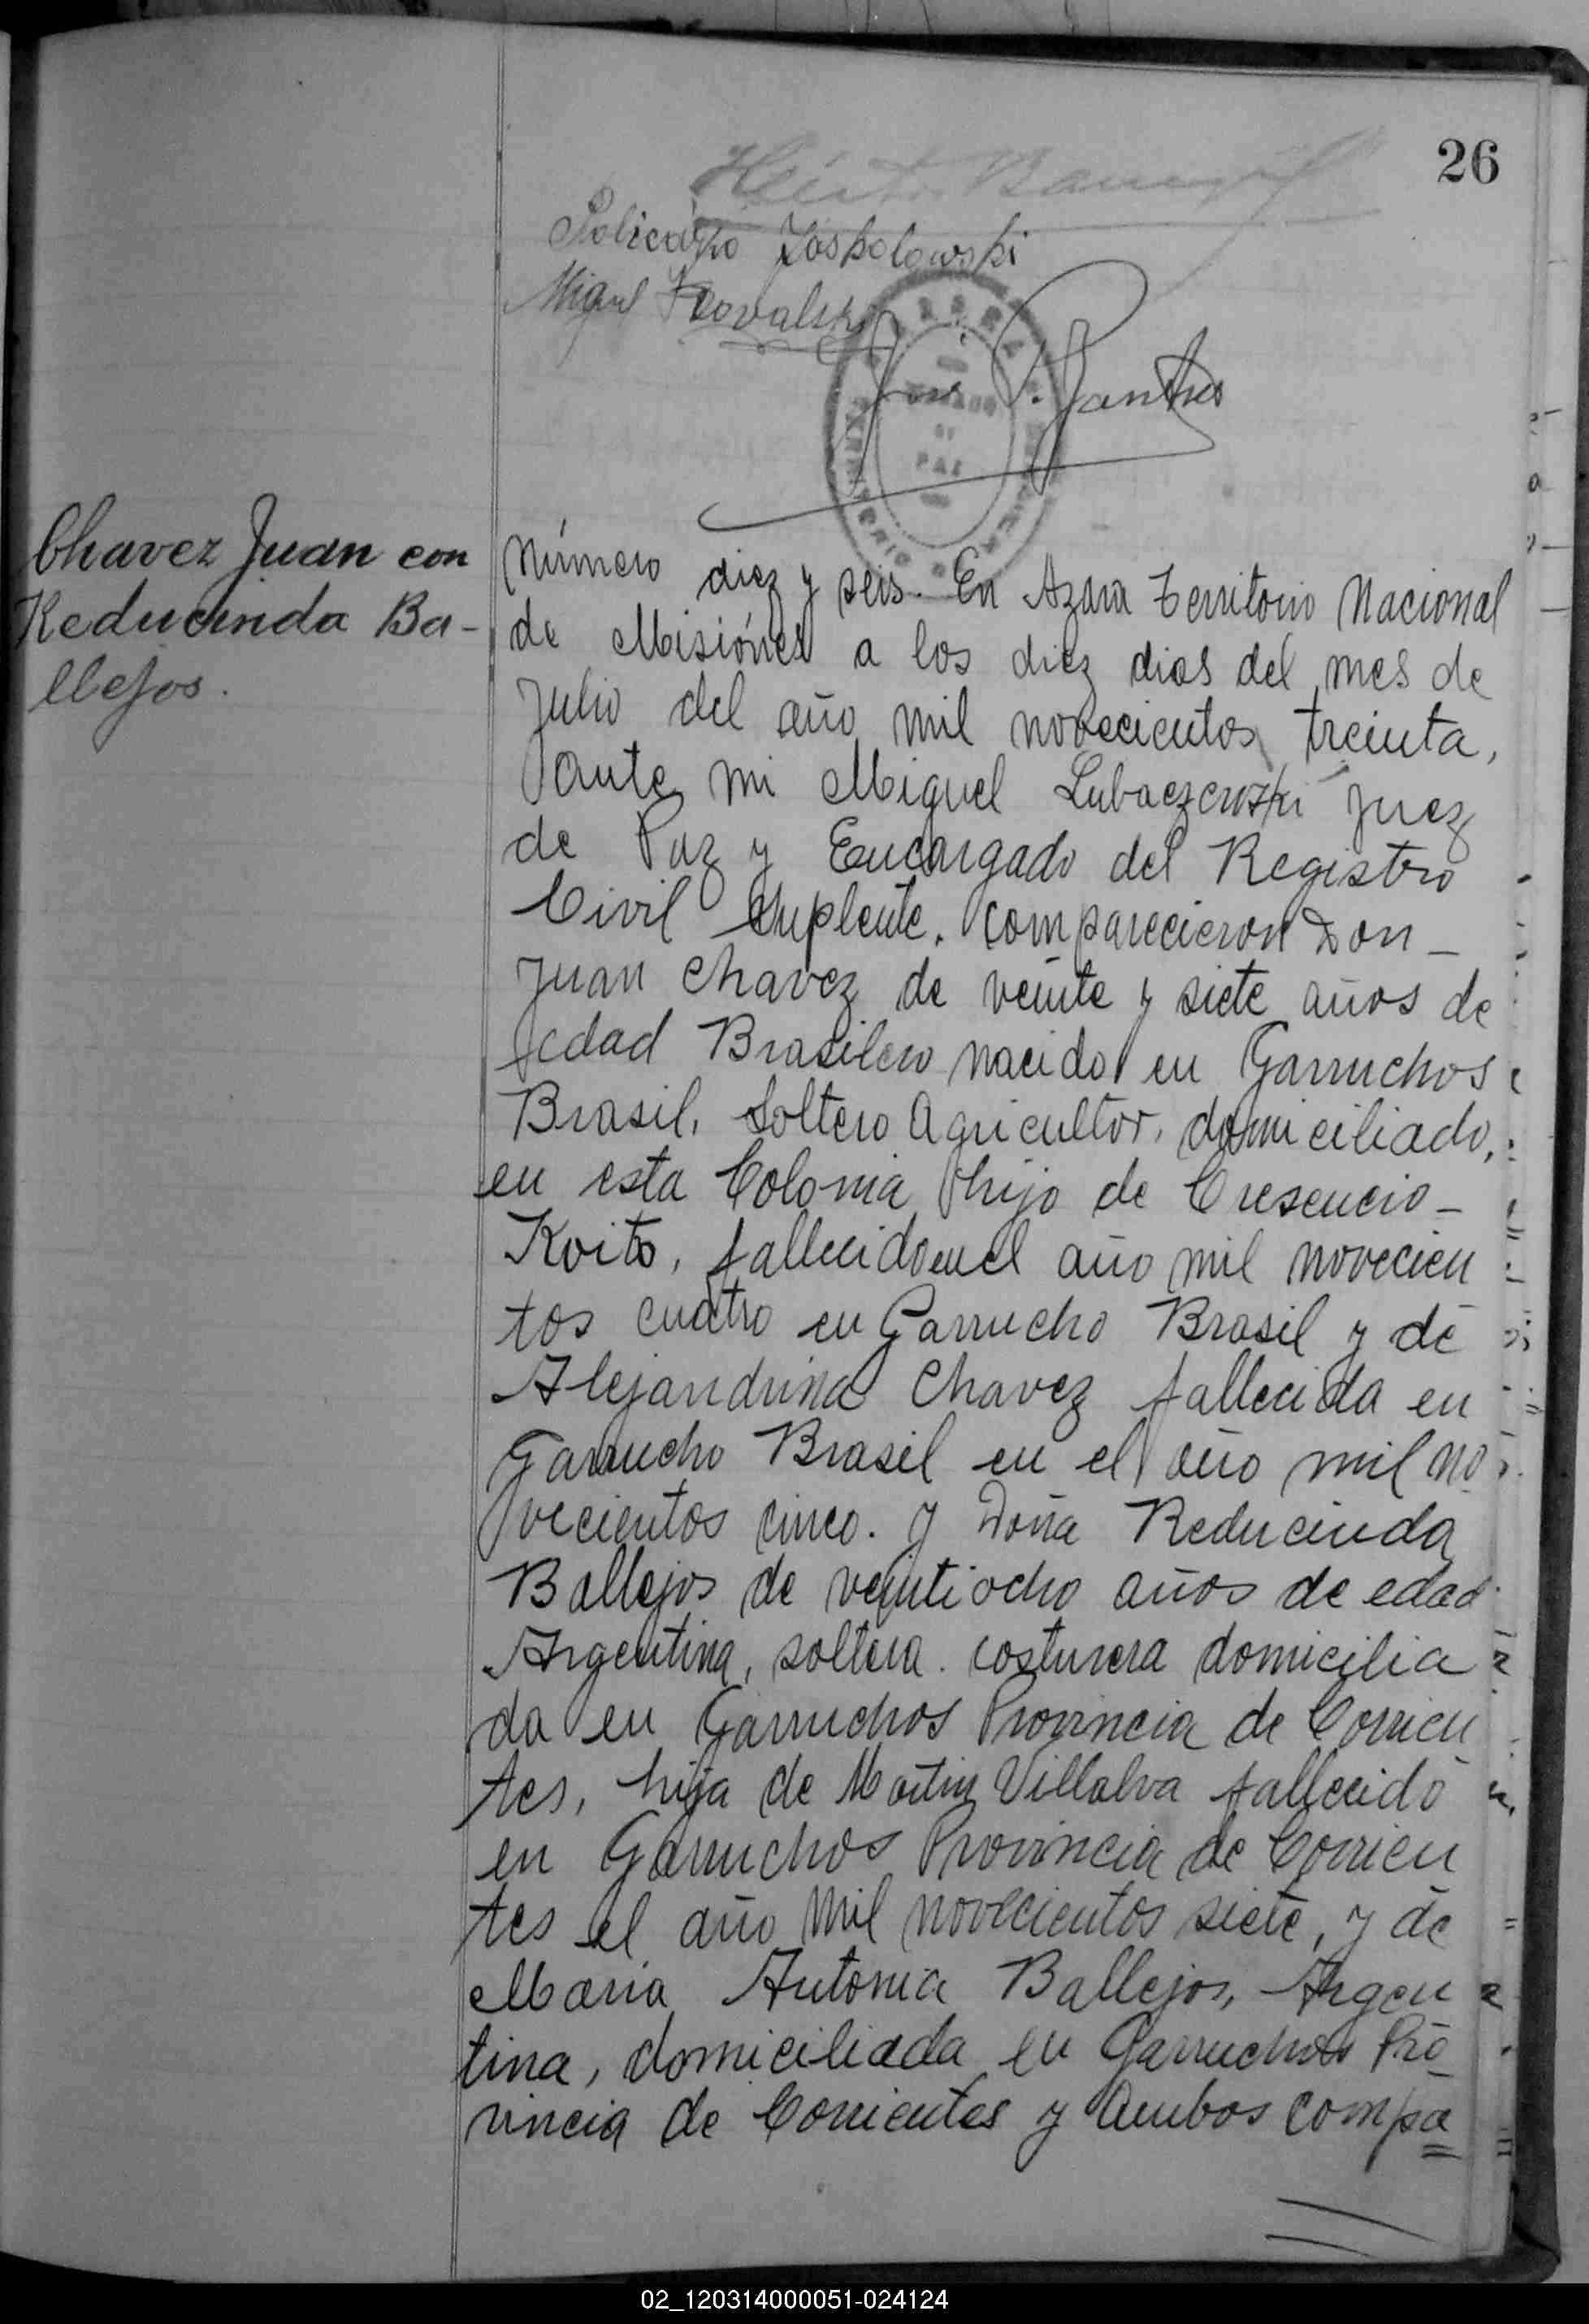 26
Policarpo Joskolowski
Miguel Kovalski
P. Santus
JUZGADO
DE
PAZ
Chavez Juan con
Reducinda Ba-
llejos.
Número diez y seis. En Azara Territorio Nacional
de Misiónes a los diez dias del mes de
Julio del año mil novecientos treinta,
ante mi Miguel Lubaczewski Juez
de Paz y Encargado del Registro
Civil Suplente. comparecieron Don -
Juan Chavez de veinte y siete años de
edad Brasilero nacido en Garruchos
Brasil, Soltero Agricultor, domiciliado,
en esta Colonia hijo de Cresencio -
Koito, fallecido en el año mil novecien
tos cuatro en Garrucho Brasil y de
Alejandrina Chavez fallecida en
Garrucho Brasil en el año mil no
vecientos cinco. y Doña Reducinda
Ballejos de veintiocho años de edad
Argentina, soltera. costurera domicilia
da en Garruchos Provincia de Corrien
tes, hija de Martin Villalva fallecido
en Garruchos Provincia de Corrien
tes el año mil novecientos siete, y de
Maria Antonia Ballejos, Argen
tina, domiciliada en Garruchos Pro
vincia de Corrientes y Ambos compa
02_120314000051-024124